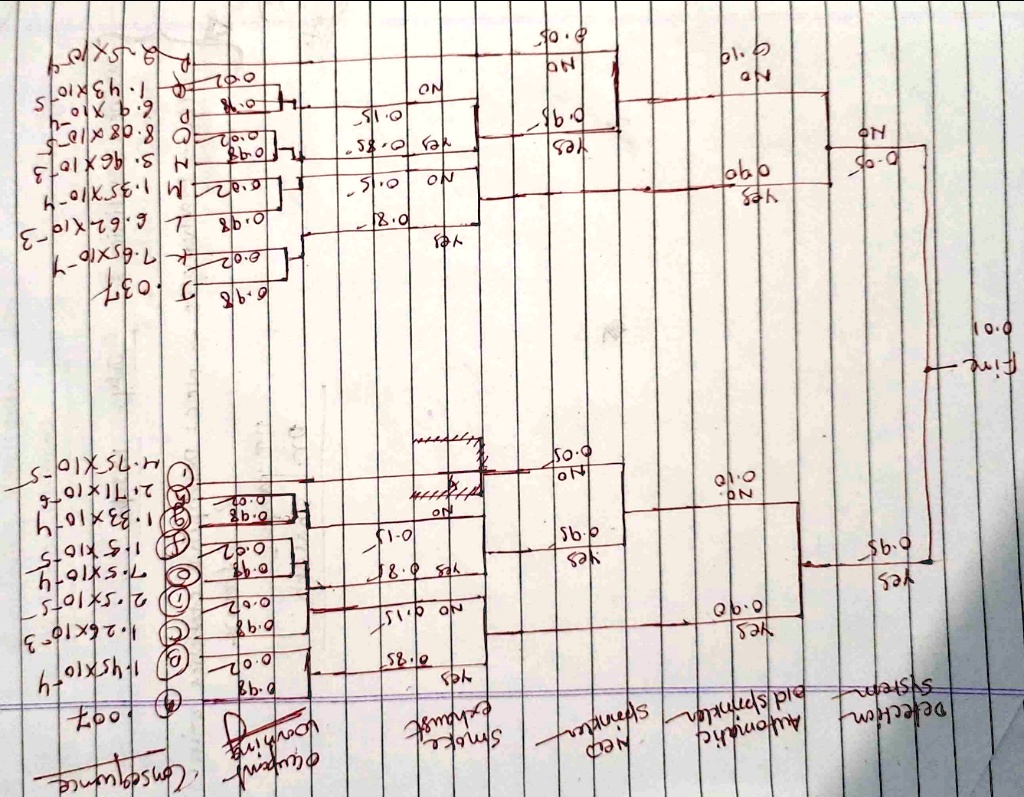 Detection System
Automatic old sprinkler
New Sprinkler
Smoke exhaust
Warning
Consequence
0.98 A .007
Yes 0.85
0.02 1.45×10-4
Yes 0.90
0.98 C 1.26×10-3
No 0.15
0.02 2.5×10-5
Yes 0.95
Yes 0.85 0.98 7.5×10-4
0.02 1.5×10-5
Yes 0.95
0.15 No 0.98 1.33×10-4
0.02 2.71×10-6
No 0.10
No 0.05 4.75×10-5
Fire 0.01
0.98 J .037
Yes 0.85
0.02 K 7.65×10-4
Yes 0.90
0.98 L 6.62×10-3
No 0.15
0.02 M 1.35×10-4
No 0.05
Yes 0.95
Yes 0.85 0.98 N 3.96×10-3
0.02 O 8.08×10-5
0.15 No 0.98 P 6.9×10-4
0.02 Q 1.43×10-5
No 0.10
No 0.05 2.5×10-4